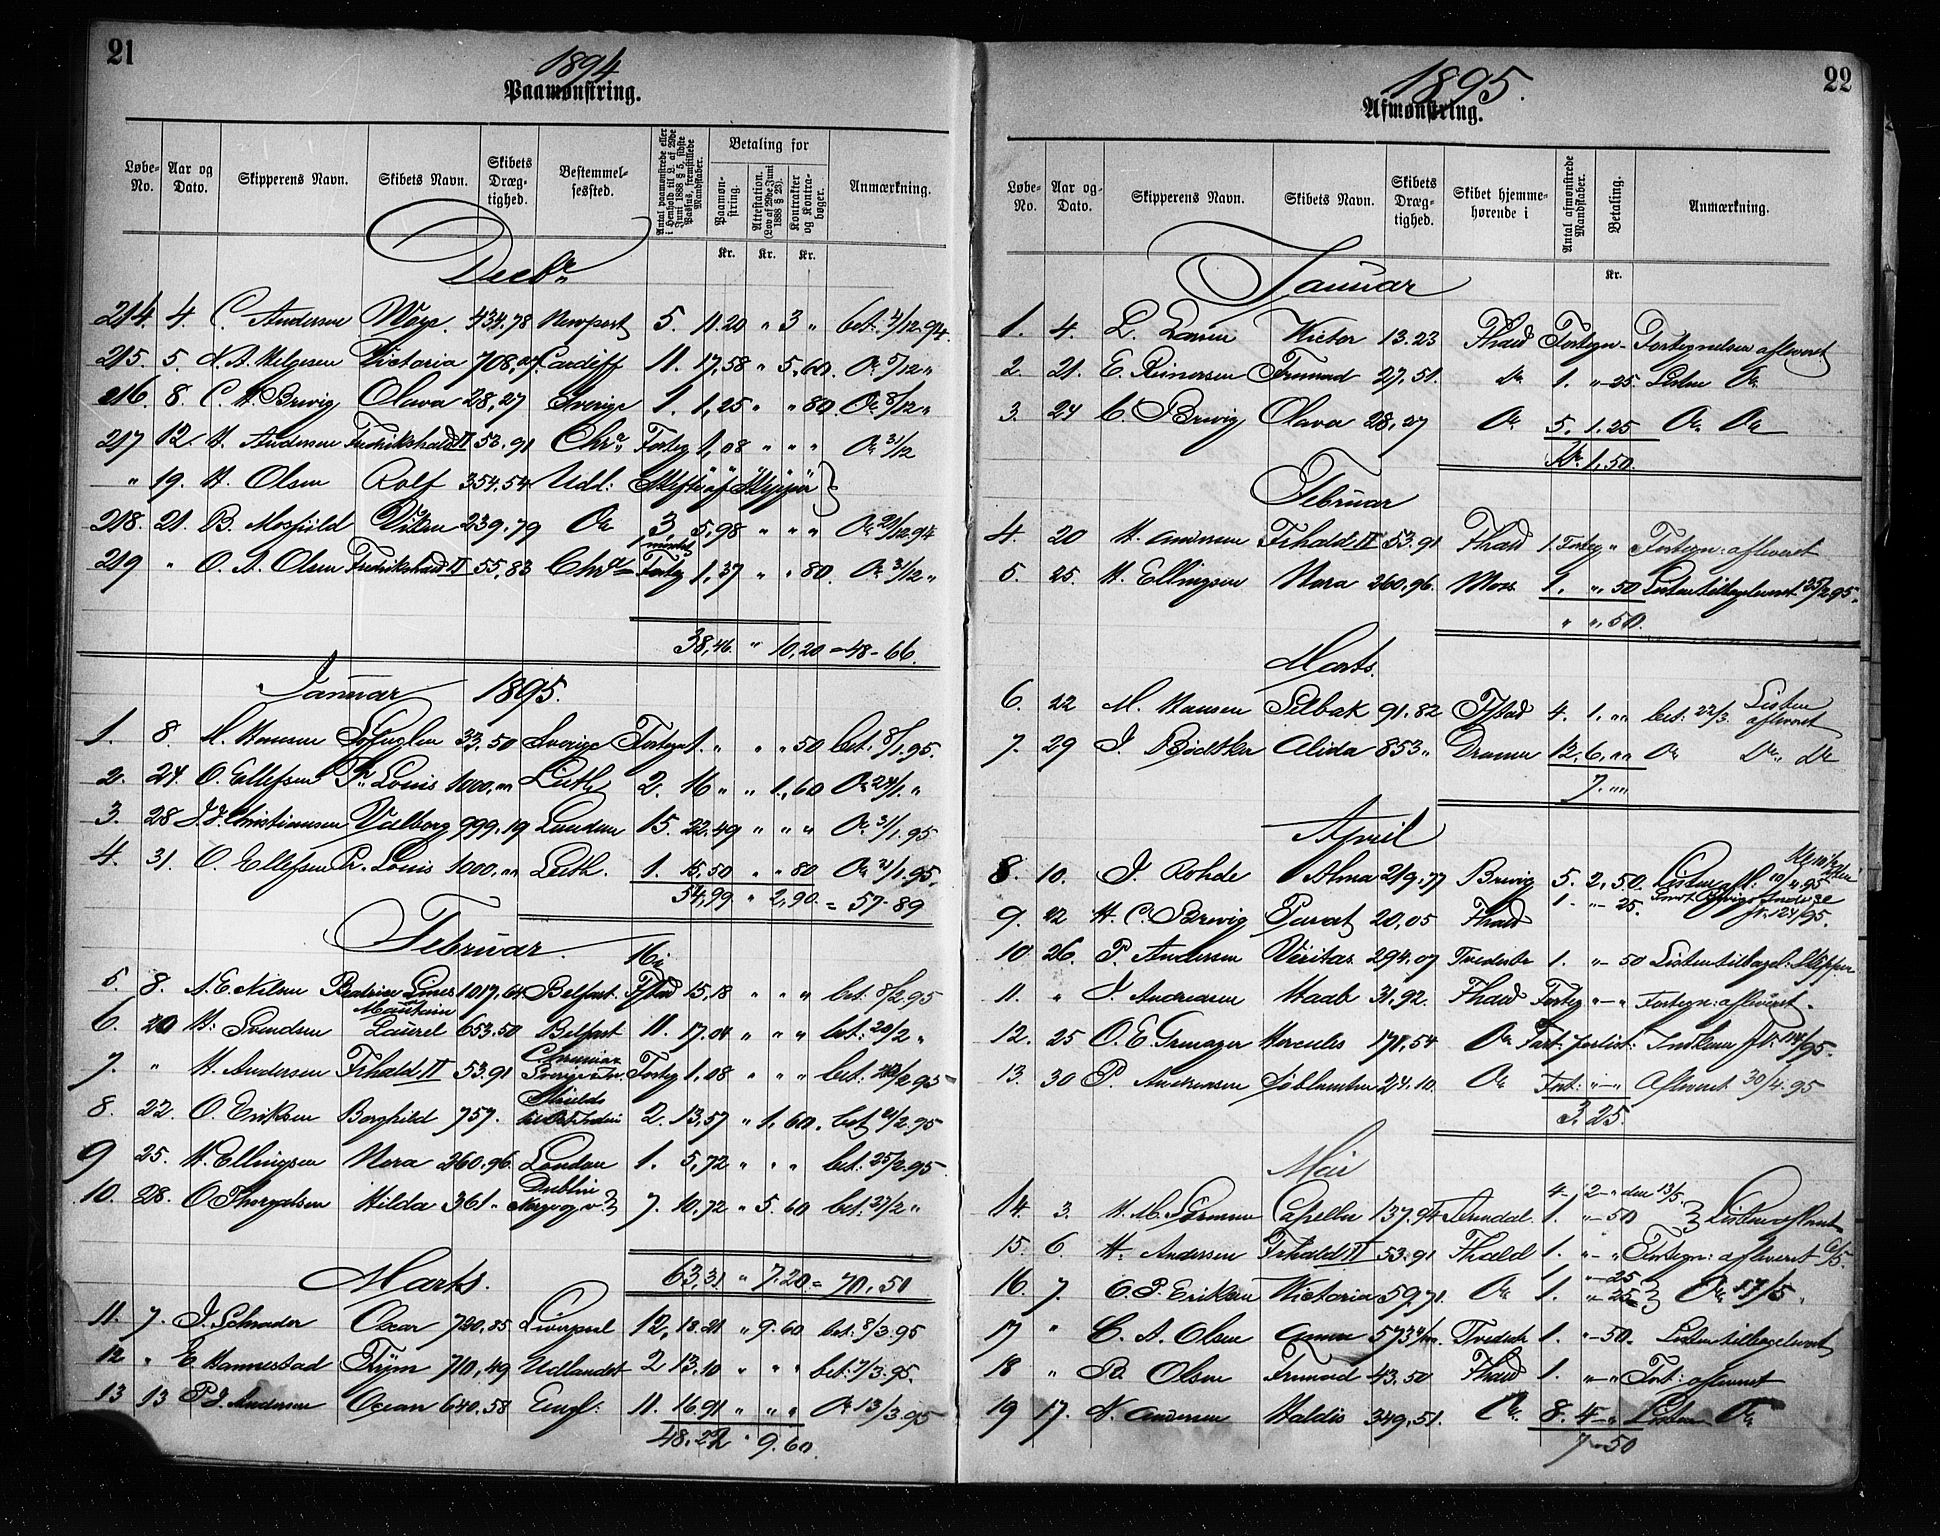 21
1894
Paamønstring.
Løbe-No. Aar og Dato. Skipperens Navn. Skibets Navn. Skibets Dræg-tighed. Bestemmel-sessted. Antal paamønstrede eller i Henhold til L. af 29de Juni 1888 § 5, sidste Passus, fremstillede Mandskaber. Betaling for Paamøn-string. Attestation. (Lov af 29de Juni 1888 § 23). Kontrakter og Kontra-bøger. Anmærkning.
Kr. Kr. Kr.
Decbr
214. 4. C. Andersen 434,78 Newport 5. 11.20 " 3 " bet: 4/12.94.
215. 5. N. A. Helgesen Victoria 708,07 Cardiff 11. 17,58 " 5,60. Do 5/12 "
216. 8. C. H. Brevig Olava 28,27 Sverige 1. 1,25 " " 80 Do 8/12 "
217 12. H. Andersen Fredrikshald II 53.91 Chra Forteg 1,08 " " " Do 31/12
" 19. H. Olsen Rolf 354,54 Udl: Skifte af Skipper }
218. 21. B. Mosfield 239.79 Do 3 5,98 " " " Do 21/12.94
219 " O. A. Olsen Fredrikshald II 55,83 Chra Forteg 1,37 " " 80. Do 31/12 "
38,46 " 10,20 = 48 - 66.
Januar 1895.
1. 8. M. Hansen 33,50 Sverige Fortegn 1. " " " 50 bet: 8/1.95.
2. 24. O. Ellefsen Pr. Louis 1000," Leith 2. 16 " " 1,60 Do 24/1. "
3. 28 J. J. Christiansen Valborg 999.19 London 15. 22.49 " " " Do 31/1.95
4. 31. O. Ellefsen Pr. Louis 1000," Leith. 1. 15,50 " " 80 Do 31/1.95.
54,99 " 2,90. = 57.89
Februar.
5 8. A. E. Nilsen Beatrice Lines 1017,64 Belfast 16 i Fstad 15,18 " " " bet: 8/2.95
6. 20 H. Svendsen Laurel 653.50 Belfast 11. 17.04 " " " bet: 20/2 "
7. " H. Andersen Frhald II 53.91 Forteg 1,08 " " " bet: 20/2.95
8. 22. O. Eriksen Borghild 757. Shields til Ost Indien 2. 13,57 " 1,60. bet 21/2.95
9 25. H. Ellingsen Nora 260.96. London 1. 5,72 " " " bet: 25/2.95.
10. 28. O. Thorvaldsen Hilda 361 " Dublin 7. 10,72 " 5.60 bet: 27/2 "
63,31 " 7.20 = 70,50
Marts.
11. 7. J. Schrader Oscar 720,85 Liverpool 12, 18.21 " 9.60 bet: 8/3.95
12 " E. Hannestad Trym 710,49 Udlandet 2 13,10 " " " bet: 7/3.95.
13 13 P. J. Andersen Ocean 640,58 Engl: 11. 16.91 " " " Do 13/3.95
48,22 " 9.60.
22
1895.
Afmønstring.
Løbe-No. Aar og Dato. Skipperens Navn. Skibets Navn. Skibets Dræg-tighed. Skibet hjemme-hørende i Antal afmønstrede Mandskaber. Betaling. Anmærkning.
Kr.
Januar
1. 4. L. Larsen Victor 13.23 Fhald Fortegn - Fortegnelsen afleveret
2. 21. E. Reinersen Fremad 27,51. Do 1. " 25 Listen Do
3. 24 C. Brevig Olava 28,27 Do 5. 1.25 Do Do
Kr. 1,50.
Februar
4. 20 H. Andersen Frhald II 53.91 Fhald 1. Forteg " Fortegn: afleveret
5. 25. H. Ellingsen Nora 260.96. Moss 1. " 50 Listen tilbageleveret 25/2.95.
" " 50.
Marts.
6. 22 M. Hansen Selbak 91.82 Fstad 4. 1. " " bet: 22/3. Listen afleveret
7. 29 J. Bödtker Alida 853 " Dramm 12. 6. " " Do Do Do
7. " "
April
8. 10. J. Rohde Alma 219.77 Brevig 5. 2,50.
9. 12 H. C. Brevig 20,05 Fhald 1 " 25.
10 26. P. Andersen Veritas 294.07 Tvedestr 1. " 50 Listen tilbagel: Skipper
11. " J. Andreasen Haab 31,92. Fhald Forteg " - " Fortegn: afleveret.
12. 25 O. E. Hercules 178,54 Do
13. 30 P. Andreasen 24.10. Do Fort: " - " Afleveret 30/4.95
3.25.
Mai
14. 3. H. M. Capella 137.94 Arendal. 4- 2 - " den 13/5 1. " 50 } Listen
15. 6. H. Andersen Frhald II 53.91 Fhald 1. " - " Fortegn: afleveret 6/5.
16. 7. C. P. Eriksen Victoria 59,71. Do 1 " - 25 1. " - 25 } Do 17/5.
17 " C. A. Olsen 573 Tvedestr 1. " - 50. Listen tilbageleveret
18 " B. Olsen Fremad 43.50 Fhald 1. " - " Fort: afleveret
19 17. N. Andersen Haldis 349,51. Do 8. 4 - " Listen Do
7 - 50